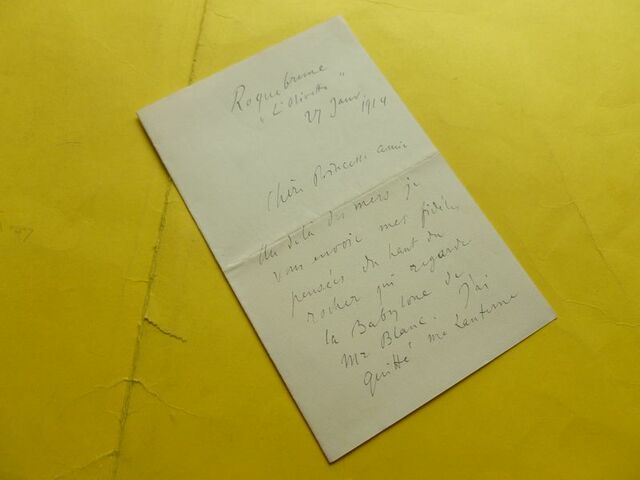 Roquebrune
"L'Olivette"
27 Janv. 1914
Chère Princesse amie
Au delà des mers je
vous envoie mes fidèles
pensées du haut du
rocher qui regarde
la Babylone de
Mr Blanc. J'ai
quitté ma Lanterne